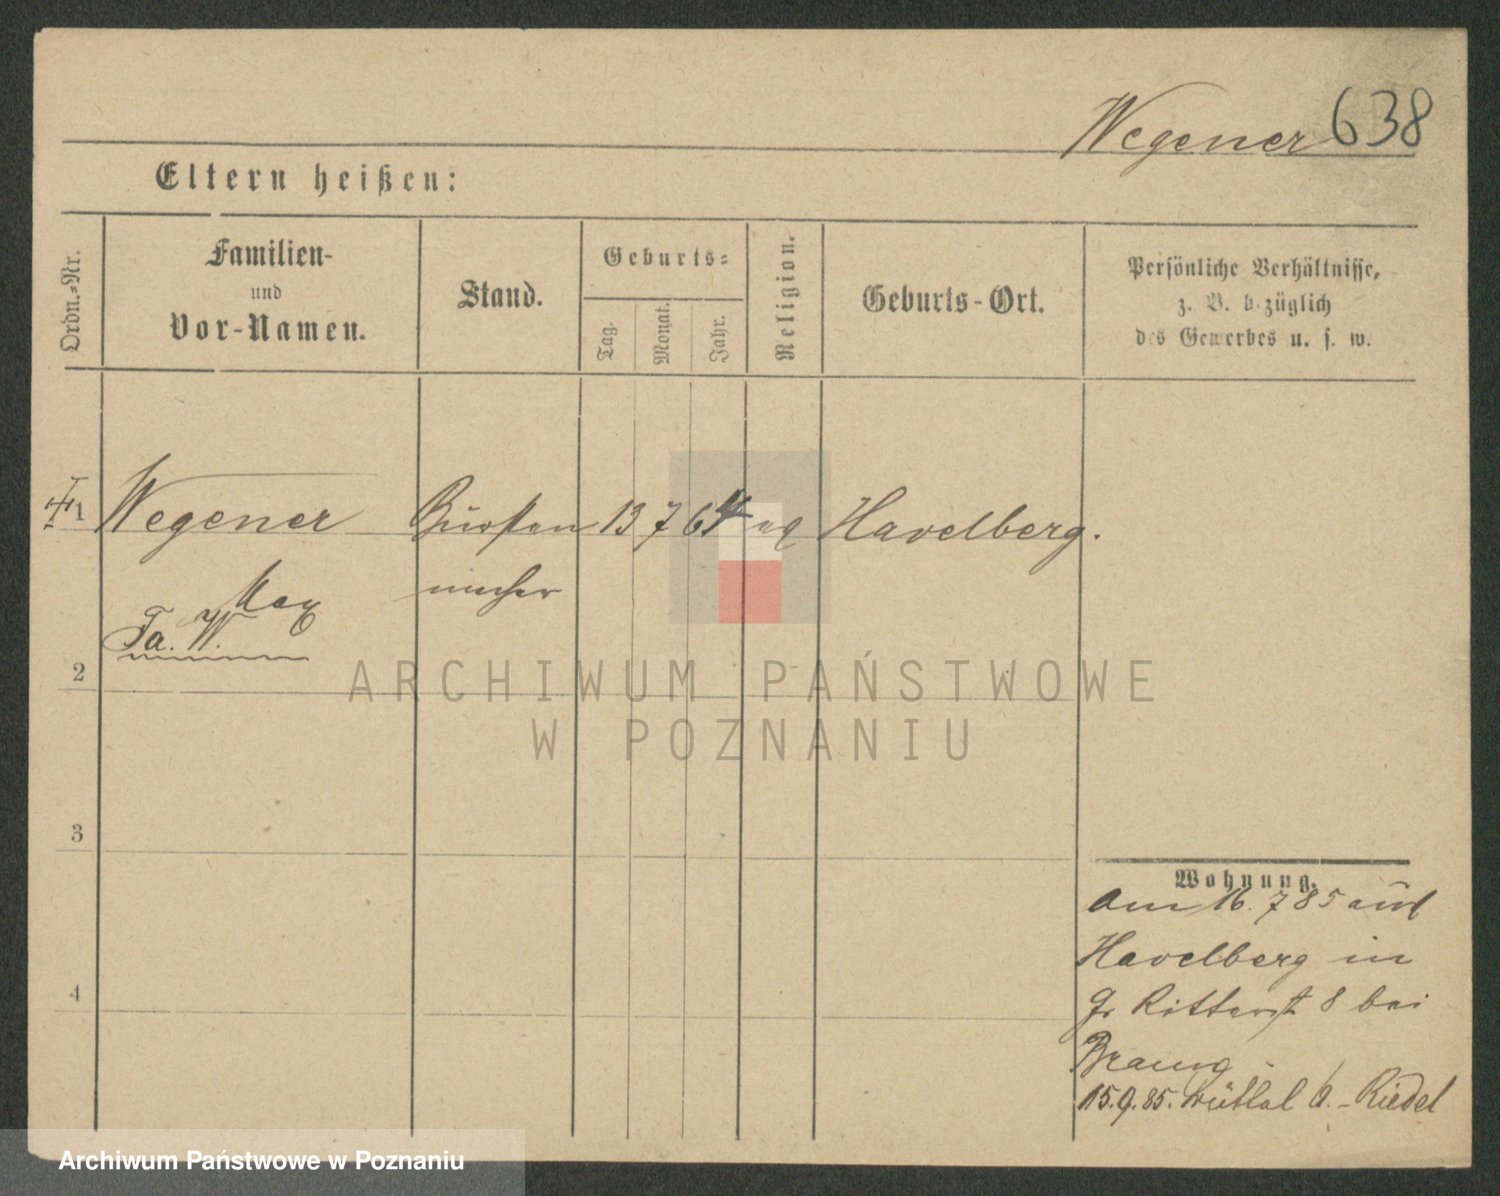 Wegener 638
Eltern heißen:
Ordn.=Nr.
Familien-
und
Vor-Namen.
Stand.
Geburts=
Tag.
Monat.
Jahr.
Religion.
Geburts-Ort.
Persönliche Verhältnisse,
z. B. bezüglich
des Gewerbes u. s. w.
1 Wegener Bürsten 13 7 64 Havelberg.
Max macher
Fa. W.
2
3
4
Wohnung.
Am 16. 7 85 aus
Havelberg in
Gr Ritterst 8 bei
15.9.85. Riedel
ARCHIWUM PAŃSTWOWE
W POZNANIU
Archiwum Państwowe w Poznaniu